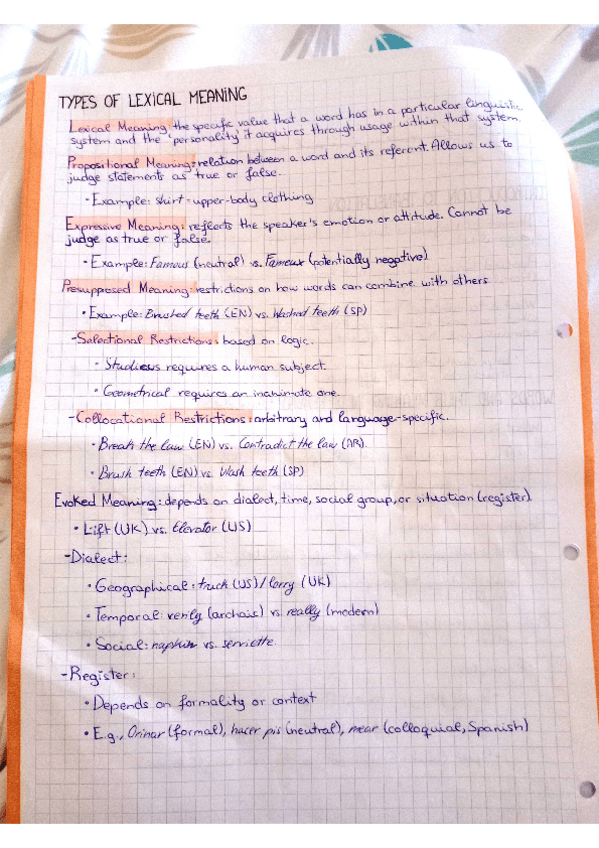 TYPES OF LEXICAL MEANING
Lexical Meaning: the specific value that a word has in a particular linguistic
system and the 'personality' it acquires through usage within that system.
Propositional Meaning: relation between a word and its referent. Allows us to
judge statements as true or false.
• Example: shirt = upper-body clothing
Expressive Meaning: reflects the speaker's emotion or attitude. Cannot be
judge as true or false.
• Example: Famous (neutral) vs. Fameux (potentially negative)
Presupposed Meaning: restrictions on how words can combine with others
• Example: Brushed teeth (EN) vs. Washed teeth (SP)
- Selectional Restrictions: based on logic.
• Studious requires a human subject.
• Geometrical requires an inanimate one.
- Collocational Restrictions: arbitrary and language-specific.
• Break the law (EN) vs. Contradict the law (AR)
• Brush teeth (EN) vs. Wash teeth (SP)
Evoked Meaning: depends on dialect, time, social group, or situation (register)
• Lift (UK) vs. Elevator (US)
- Dialect:
• Geographical: truck (US) / lorry (UK)
• Temporal: verily (archais) vs. really (modern)
• Social: napkin vs. serviette
- Register:
• Depends on formality or context
• E.g., Orinar (formal), hacer pis (neutral), mear (colloquial, Spanish)